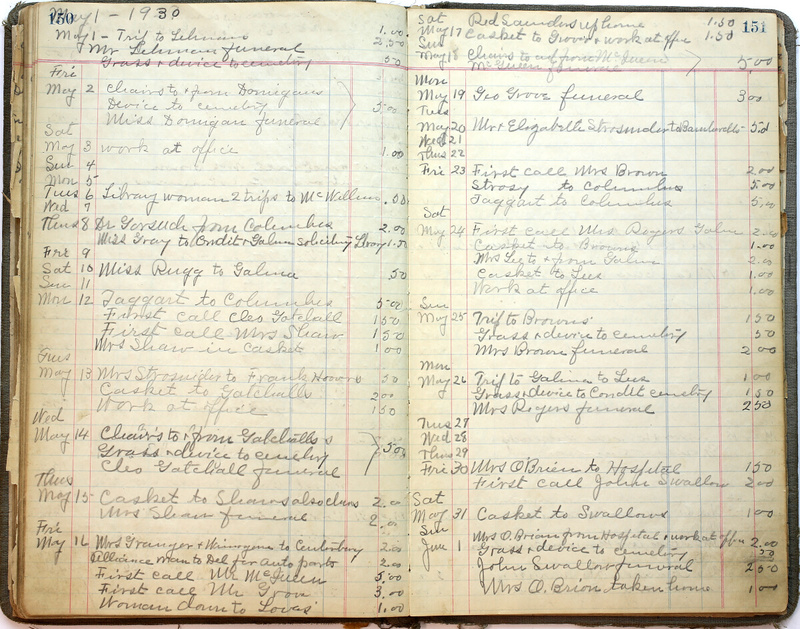 May 1 - 1930
150
May 1 - Trip to Lehmans 1.00
Mr Lehman funeral 2.50
Grass & device to cemetry 50
Fri
May 2 Chairs to & from Donigans
Device to cemetry 5.00
Miss Donigan funeral
Sat
May 3 work at office 1.00
Sun 4
Mon 5
Tues 6 Library woman 2 trips to McWillins
Wed 7
Thus 8 Dr Gorsuch from Columbus 2.00
Miss Gray to Condit & Galena Soliciting Library 1.50
Fri 9
Sat 10 Miss Rugg to Galina 50
Sun 11
Mon 12 Taggart to Columbus 5.00
First call Cleo Gatchall 1 50
First call Mrs Shaw 1 50
Mrs Shaw in casket 1 00
Tues
May 13 Mrs Strosnider to Frank Howers 50
Casket to Gatchalls 2 00
Work at office 1 50
Wed
May 14 Chairs to & from Gatchalls
Grass & device to cemetry 5.00
Cleo Gatchall funeral
Thus
May 15 - Casket to Shaws also chairs 2.00
Mrs Shaw funeral 2.00
Fri
May 16 Mrs Granger & to Centerburg 2.00
Alliance man to Del for auto parts 2.00
First call Mr McQueen 5.00
First call Mr Grove 3.00
Woman down to Loves 1.00
151
Sat Red Saunders up home 1.50
May 17 Casket to Groves & work at office 1.50
Sun
May 18 Chairs to and from McQueen
McQueen funeral 5.00
Mon
May 19 Geo Grove funeral 3 00
Tues
May 20 Mrs Elizabeth Strosnider to 50
Wed 21
Thus 22
Fri 23 First call Mrs Brown 2 00
Strosy to Columbus 5.00
Taggart to Columbus 5.00
Sat
May 24 First call Mrs Rogers Galena 2.00
Casket to Browns 1.00
Mrs Lee to & from Galena 2.00
Casket to Lees 1.00
Work at office 1.00
Sun
May 25 Trip to Browns 1 50
Grass & device to cemetry 50
Mrs Brown funeral 2 00
Mon
May 26 Trip to Galina to Lees 1 00
Grass & device to Condit cemetry 1 50
Mrs Rogers funeral 2 50
Tues 27
Wed 28
Thus 29
Fri 30 Mrs O Brien to Hospital 1 50
First call John Swallow 2 00
Sat
May 31 Casket to Swallows 1 00
Sun
June 1 Mrs O. Brian from Hospital & work at office 2.00
Grass & device to cemetry 50
John Swallow funeral 2 50
Mrs O. Brion taken home 1 00